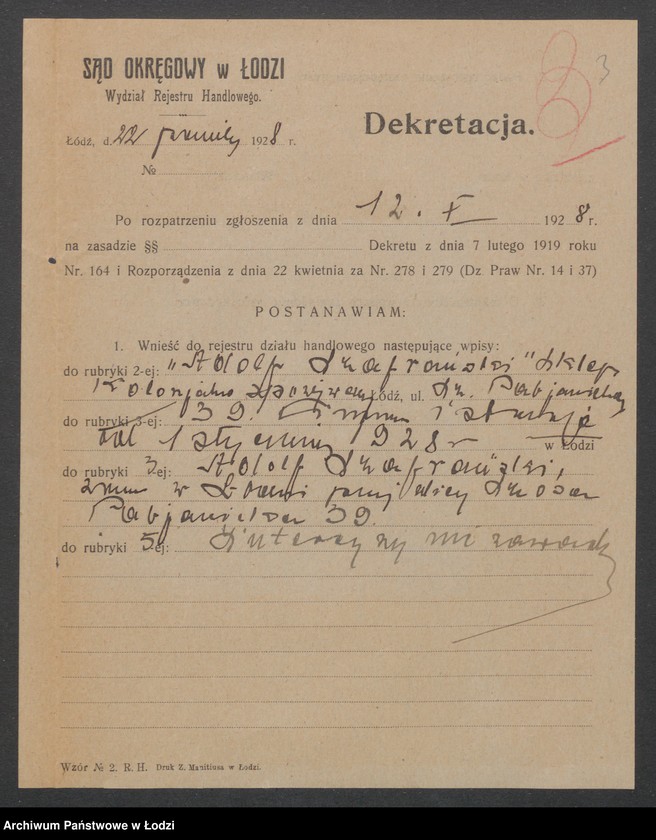 3
SĄD OKRĘGOWY w ŁODZI
Wydział Rejestru Handlowego.
Dekretacja.
Łódź, d. 22 1928 r.
№
Po rozpatrzeniu zgłoszenia z dnia 12. X 1928 r.
na zasadzie §§ Dekretu z dnia 7 lutego 1919 roku
Nr. 164 i Rozporządzenia z dnia 22 kwietnia za Nr. 278 i 279 (Dz Praw Nr. 14 i 37)
POSTANAWIAM:
1. Wnieść do rejestru działu handlowego następujące wpisy:
do rubryki 2-ej: "Adolf Szafrański" Sklep
Kolonjalno Spożywczy Łódź, ul. Sz. Pabjanicka
do rubryki 3-ej: 39. Firma istnieje
od 1 stycznia 928 r w Łodzi
do rubryki 3-ej: Adolf Szafrański,
zam w Łodzi przy ulicy Szosa
Pabjanicka 39.
do rubryki 5-ej: Intercyzy nie zawarł
Wzór № 2. R. H. Druk Z. Manitiusa w Łodzi.
Archiwum Państwowe w Łodzi